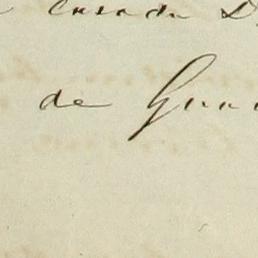 casada D
de Gua